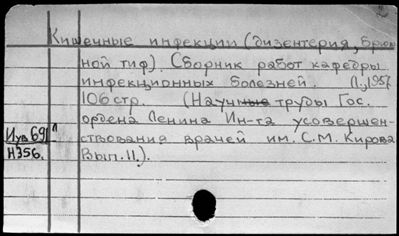 Кишечные инфекции (дизентерия, брюш
ной тиф). Сборник работ кафедры
инфекционных болезней. Л., 1957.
106 стр. (Научные труды Гос.
ордена Ленина Ин-та усовершен-
Иув 691
ствования врачей им. С.М. Кирова
Н356.
Вып. 11.).